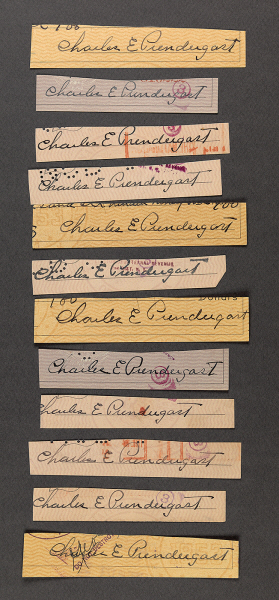 100
Charles E Prendergast
Charles E Prendergast
Charles E Prendergast
Charles E Prendergast
Charles E Prendergast
INTERNAL REVENUE
Charles E Prendergast
100
Dollars
Charles E Prendergast
Charles E Prendergast
Charles E Prendergast
Charles E Prendergast
Charles E Prendergast
Charles E Prendergast